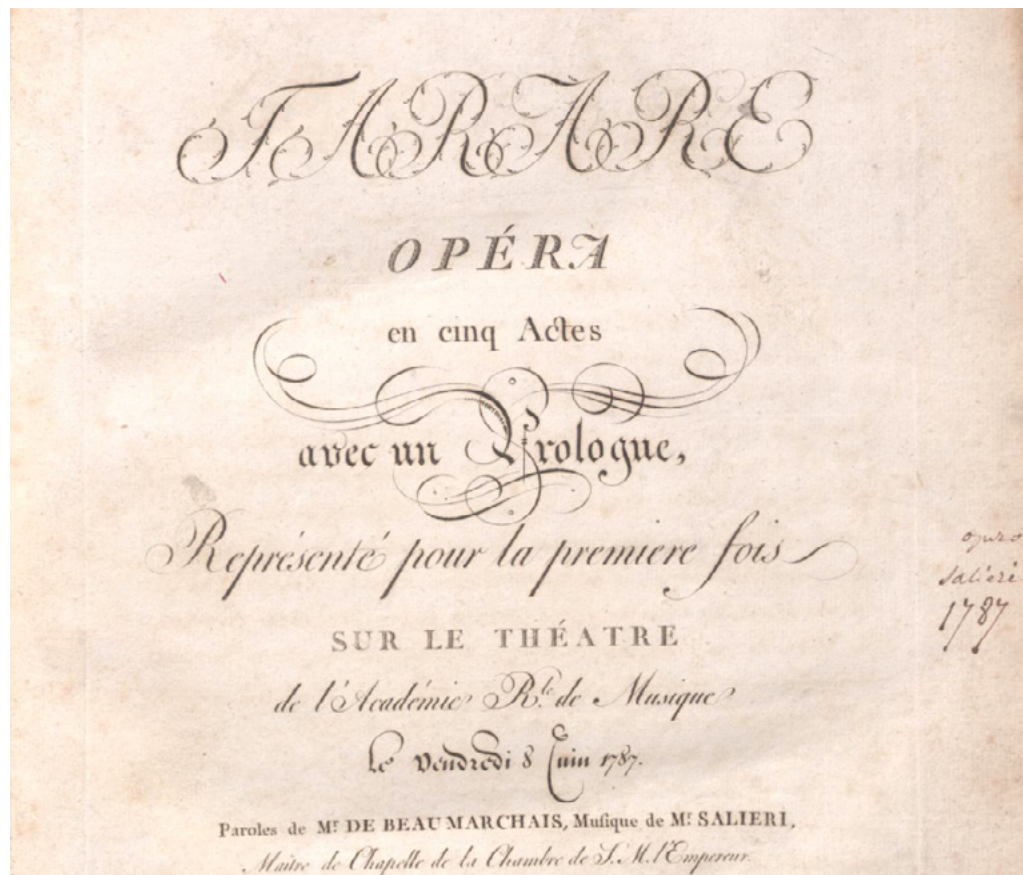 TARARE
OPÉRA
en cinq Actes
avec un Prologue,
Représenté pour la premiere fois
SUR LE THÉATRE
de l'Académie Rle. de Musique
Le Vendredi 8 Juin 1787.
Paroles de Mr. DE BEAUMARCHAIS, Musique de Mr. SALIERI,
Maitre de Chapelle de la Chambre de S. M. l'Empereur.
Salieri
1787